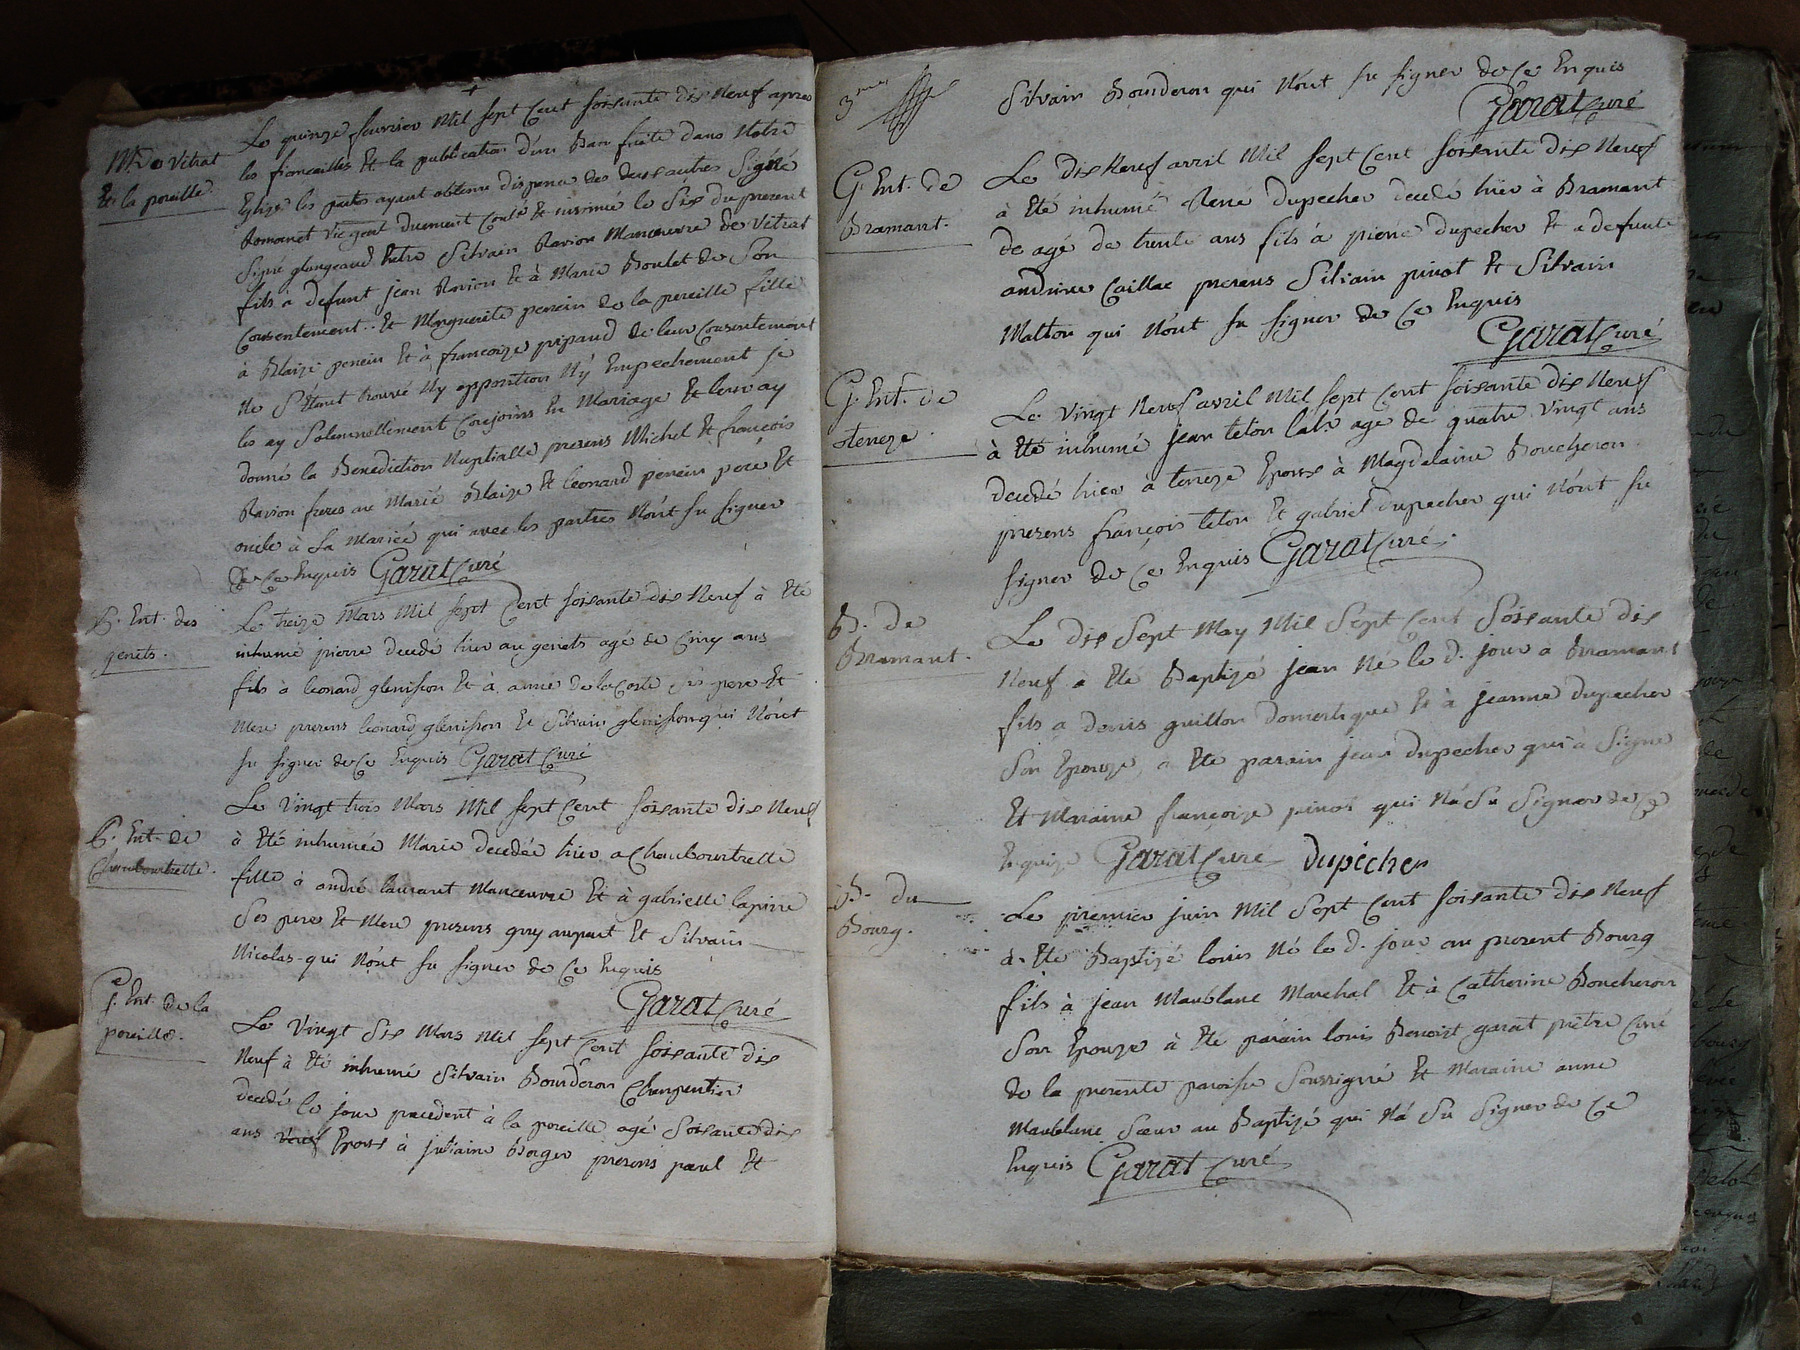 M. De Vitrat
Et la poreille.
Le quinze fevrier Mil sept Cent soixante dix Neuf apres
les fiancailles Et la publication d'un Ban faite dans Notre
Eglise les parties ayant obtenu dispence des deux autres Signé
Romanet vicgent duement Conté Et insinué le Six du present
Signé glangeaud Entre Silvain Ravion Manœuvre de Vitrat
fils a defunt jean Ravion Et à Marie Boulet de Son
Consentement.. Et Marguerite perrein de la poreille fille
à Blaize perrein Et à françoize pipaud de leur Consentement
Ne S'étant trouvé Ny opposition Ny Empechement je
les ay Solemnellement Conjoins En Mariage Et leur ay
donné la Benediction Nuptialle presens Michel Et françois
Ravion freres au Marié Blaize Et leonard perrein pere Et
oncle à La Mariée qui avec les parties N'ont su signer
De Ce Enquis Garat Curé
P. Ent. des
genets.
Le treize Mars Mil sept Cent soixante dix Neuf à Eté
inhumé pierre decedé hier au genets agé de Cinq ans
fils à leonard glenisson Et à anne de la Coste ses pere Et
Mere presens leonard glenisson Et Silvain glenisson qui N'ont
su signer de Ce Enquis Garat Curé
P. Ent. de
Chambourtrette.
Le Vingt trois Mars Mil sept Cent soixante dix Neuf
à Eté inhumée Marie decedée hier a Chambourtrette
fille à andré laurant Manœuvre Et à gabrielle lapirre
Ses pere Et Mere presens guy aupart Et Silvain
Nicolas qui N'ont su signer de Ce Enquis
Garat Curé
G. Ent. de la
poreille.
Le Vingt Six Mars Mil sept Cent soixante dix
Neuf à Eté inhumé Silvain Bourderon Charpentier
decedé le jour precedent à la poreille agé Soixante dix
ans veuf Epoux à juliaine Borger presens paul Et
3me
Silvain Bourderon qui N'ont su signer de Ce Enquis
Garat Curé
G. Ent. de
Bramant.
Le dix Neuf avril Mil sept Cent soixante dix Neuf
à Eté inhumé René Dupecher decedé hier à Bramant
de agé de trente ans fils à pierre dupecher Et a defunte
andrive Caillac presens Silvain pinot Et Silvain
Malton qui N'ont su signer de Ce Enquis
Garat Curé
G. Ent. de
teneze.
Le Vingt Neuf avril Mil sept Cent soixante dix Neuf
à Eté inhumé jean teton Labr agé de quatre Vingt ans
decedé hier à teneze Epoux à Magdelaine Boucheron
presens françois teton Et gabriel dupecher qui N'ont su
signer de Ce Enquis Garat Curé.
B. de
Bramant.
Le dix Sept May Mil Sept Cent Soixante dix
Neuf a Eté Baptizé jean Né le d. jour a Bramant
fils a denis guillon Domestique Et à jeanne dupecher
Son Epouze, a Eté parain jean dupecher qui à Signé
Et Maraine françoize pinot qui N'a Su Signer de Ce
Enquize Garat Curé dupécher
B. du
Bourg.
Le premier juin Mil Sept Cent soixante dix Neuf
à Eté Baptizé louis Né le d. jour au present Bourg
fils à jean Maublanc Marchal Et à Catherine Boucheron
Son Epouze à Eté parain louis Benoist garat prêtre Curé
de la presente paroisse Soussigné Et Maraine anne
Maublanc Sœur au Baptizé qui N'a Su Signer de Ce
Enquis Garat Curé